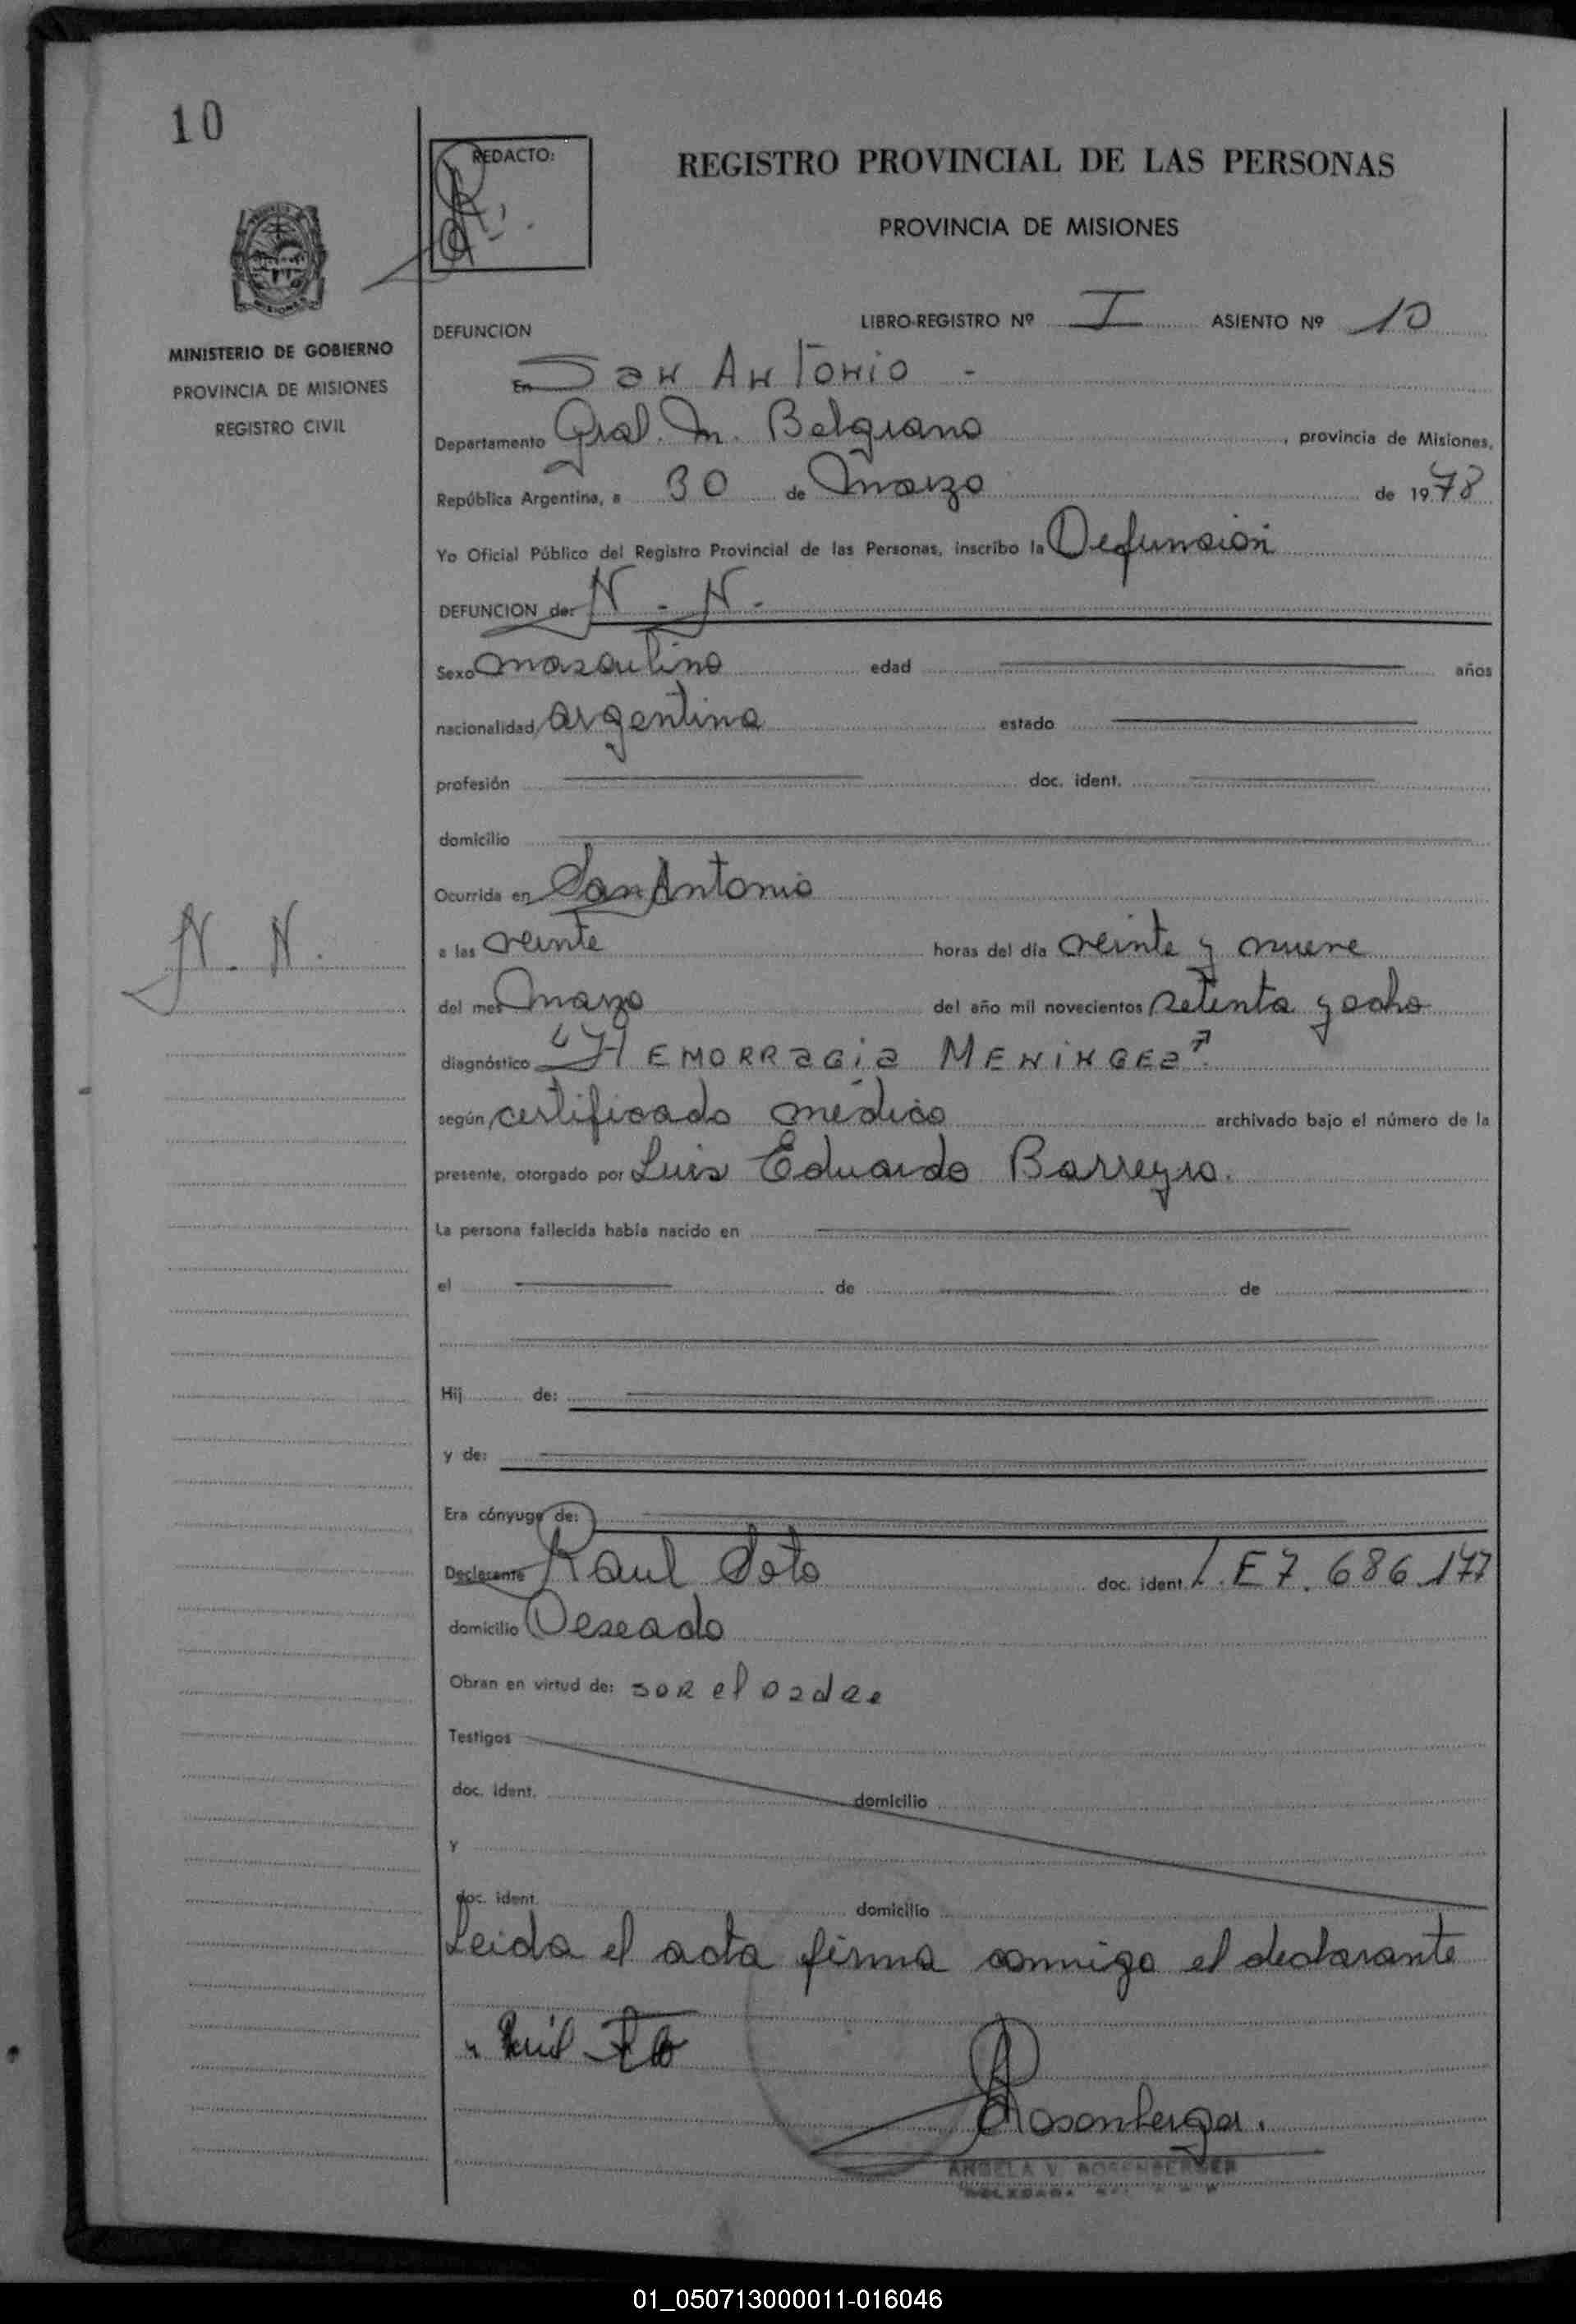 10
REDACTO:
REGISTRO PROVINCIAL DE LAS PERSONAS
PROVINCIA DE MISIONES
MINISTERIO DE GOBIERNO
PROVINCIA DE MISIONES
REGISTRO CIVIL
DEFUNCION
LIBRO-REGISTRO Nº I ASIENTO Nº 10
En San Antonio -
Departamento Gral. M. Belgrano, provincia de Misiones,
República Argentina, a 30 de Marzo de 1978
Yo Oficial Público del Registro Provincial de las Personas, inscribo la Defunsión
DEFUNCION de: N. N.
Sexo masculino edad años
nacionalidad argentina estado
profesión doc. ident.
domicilio
Ocurrida en San Antonio
N. N.
a las veinte horas del día veinte y nueve
del mes marzo del año mil novecientos setenta y ocho
diagnóstico "HEMORRAGIA MENINGEA".
según certificado médico archivado bajo el número de la
presente, otorgado por Luis Eduardo Barreyro.
La persona fallecida había nacido en
el de de
Hij de:
y de:
Era cónyuge de:
Declarante Raul Soto doc. ident. L.E 7.686.177
domicilio Deseado
Obran en virtud de: ser el padre
Testigos
doc. ident. domicilio
y
doc. ident. domicilio
Leida el acta firma conmigo el declarante
Raúl Soto
Rosenberger.
ANGELA V. ROSENBERGER
01_050713000011-016046